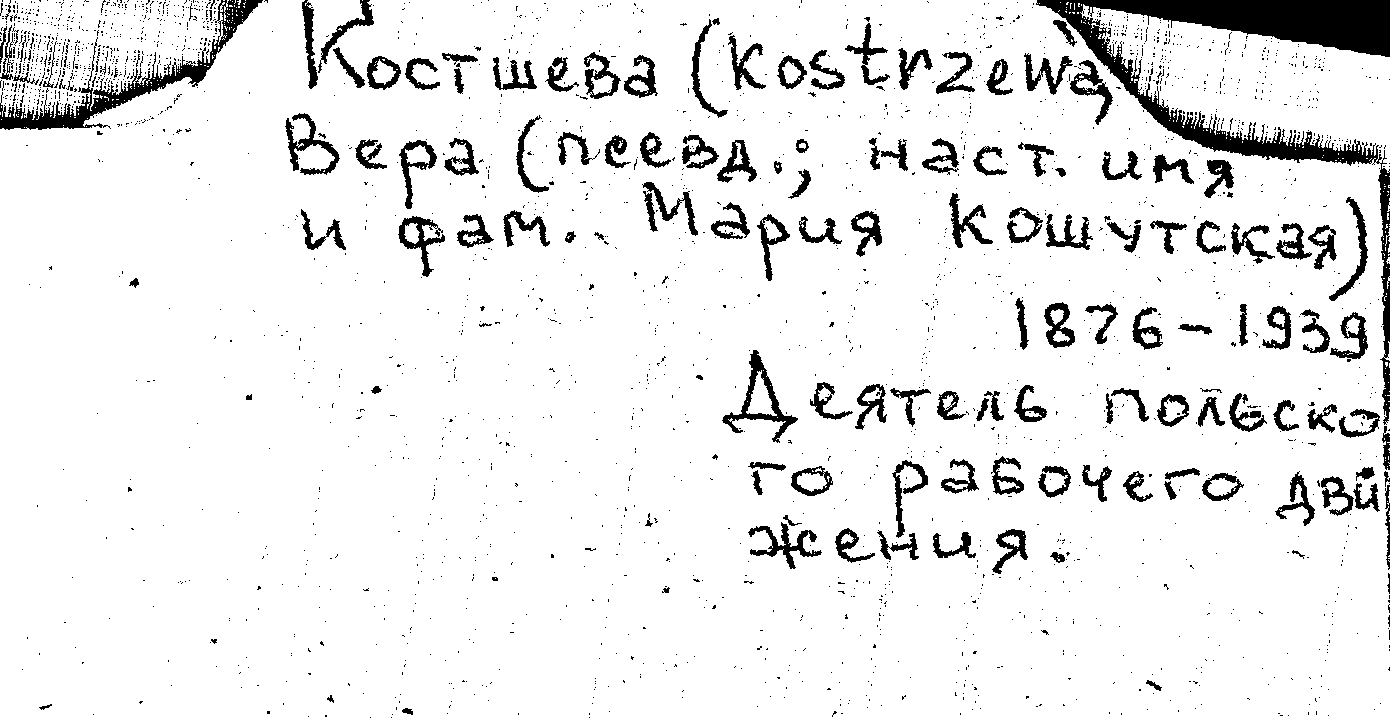 Костшева (Kostrzewa,
Вера (псевд.; наст. имя
и фам.. Мария Кошутская)
1876-1939
Деятель польско
го рабочего дви
жения.